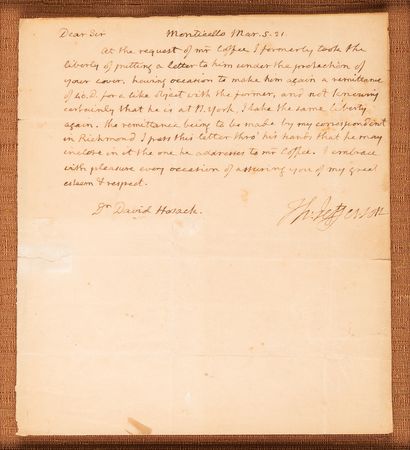 Dear Sir Monticello Mar. 5. 21
At the request of mr Coffee I formerly took the
liberty of putting a letter to him under the protection of
your cover. having occasion to make him again a remittance
of 46. D. for a like object with the former, and not knowing
certainly that he is at N. York, I take the same liberty
again. the remittance being to be made by my correspondent
in Richmond I pass this letter thro' his hands that he may
inclose in it the one he addresses to mr Coffee. I embrace
with pleasure every occasion of assuring you of my great
esteem & respect.
Th: Jefferson
Dr David Hosack.